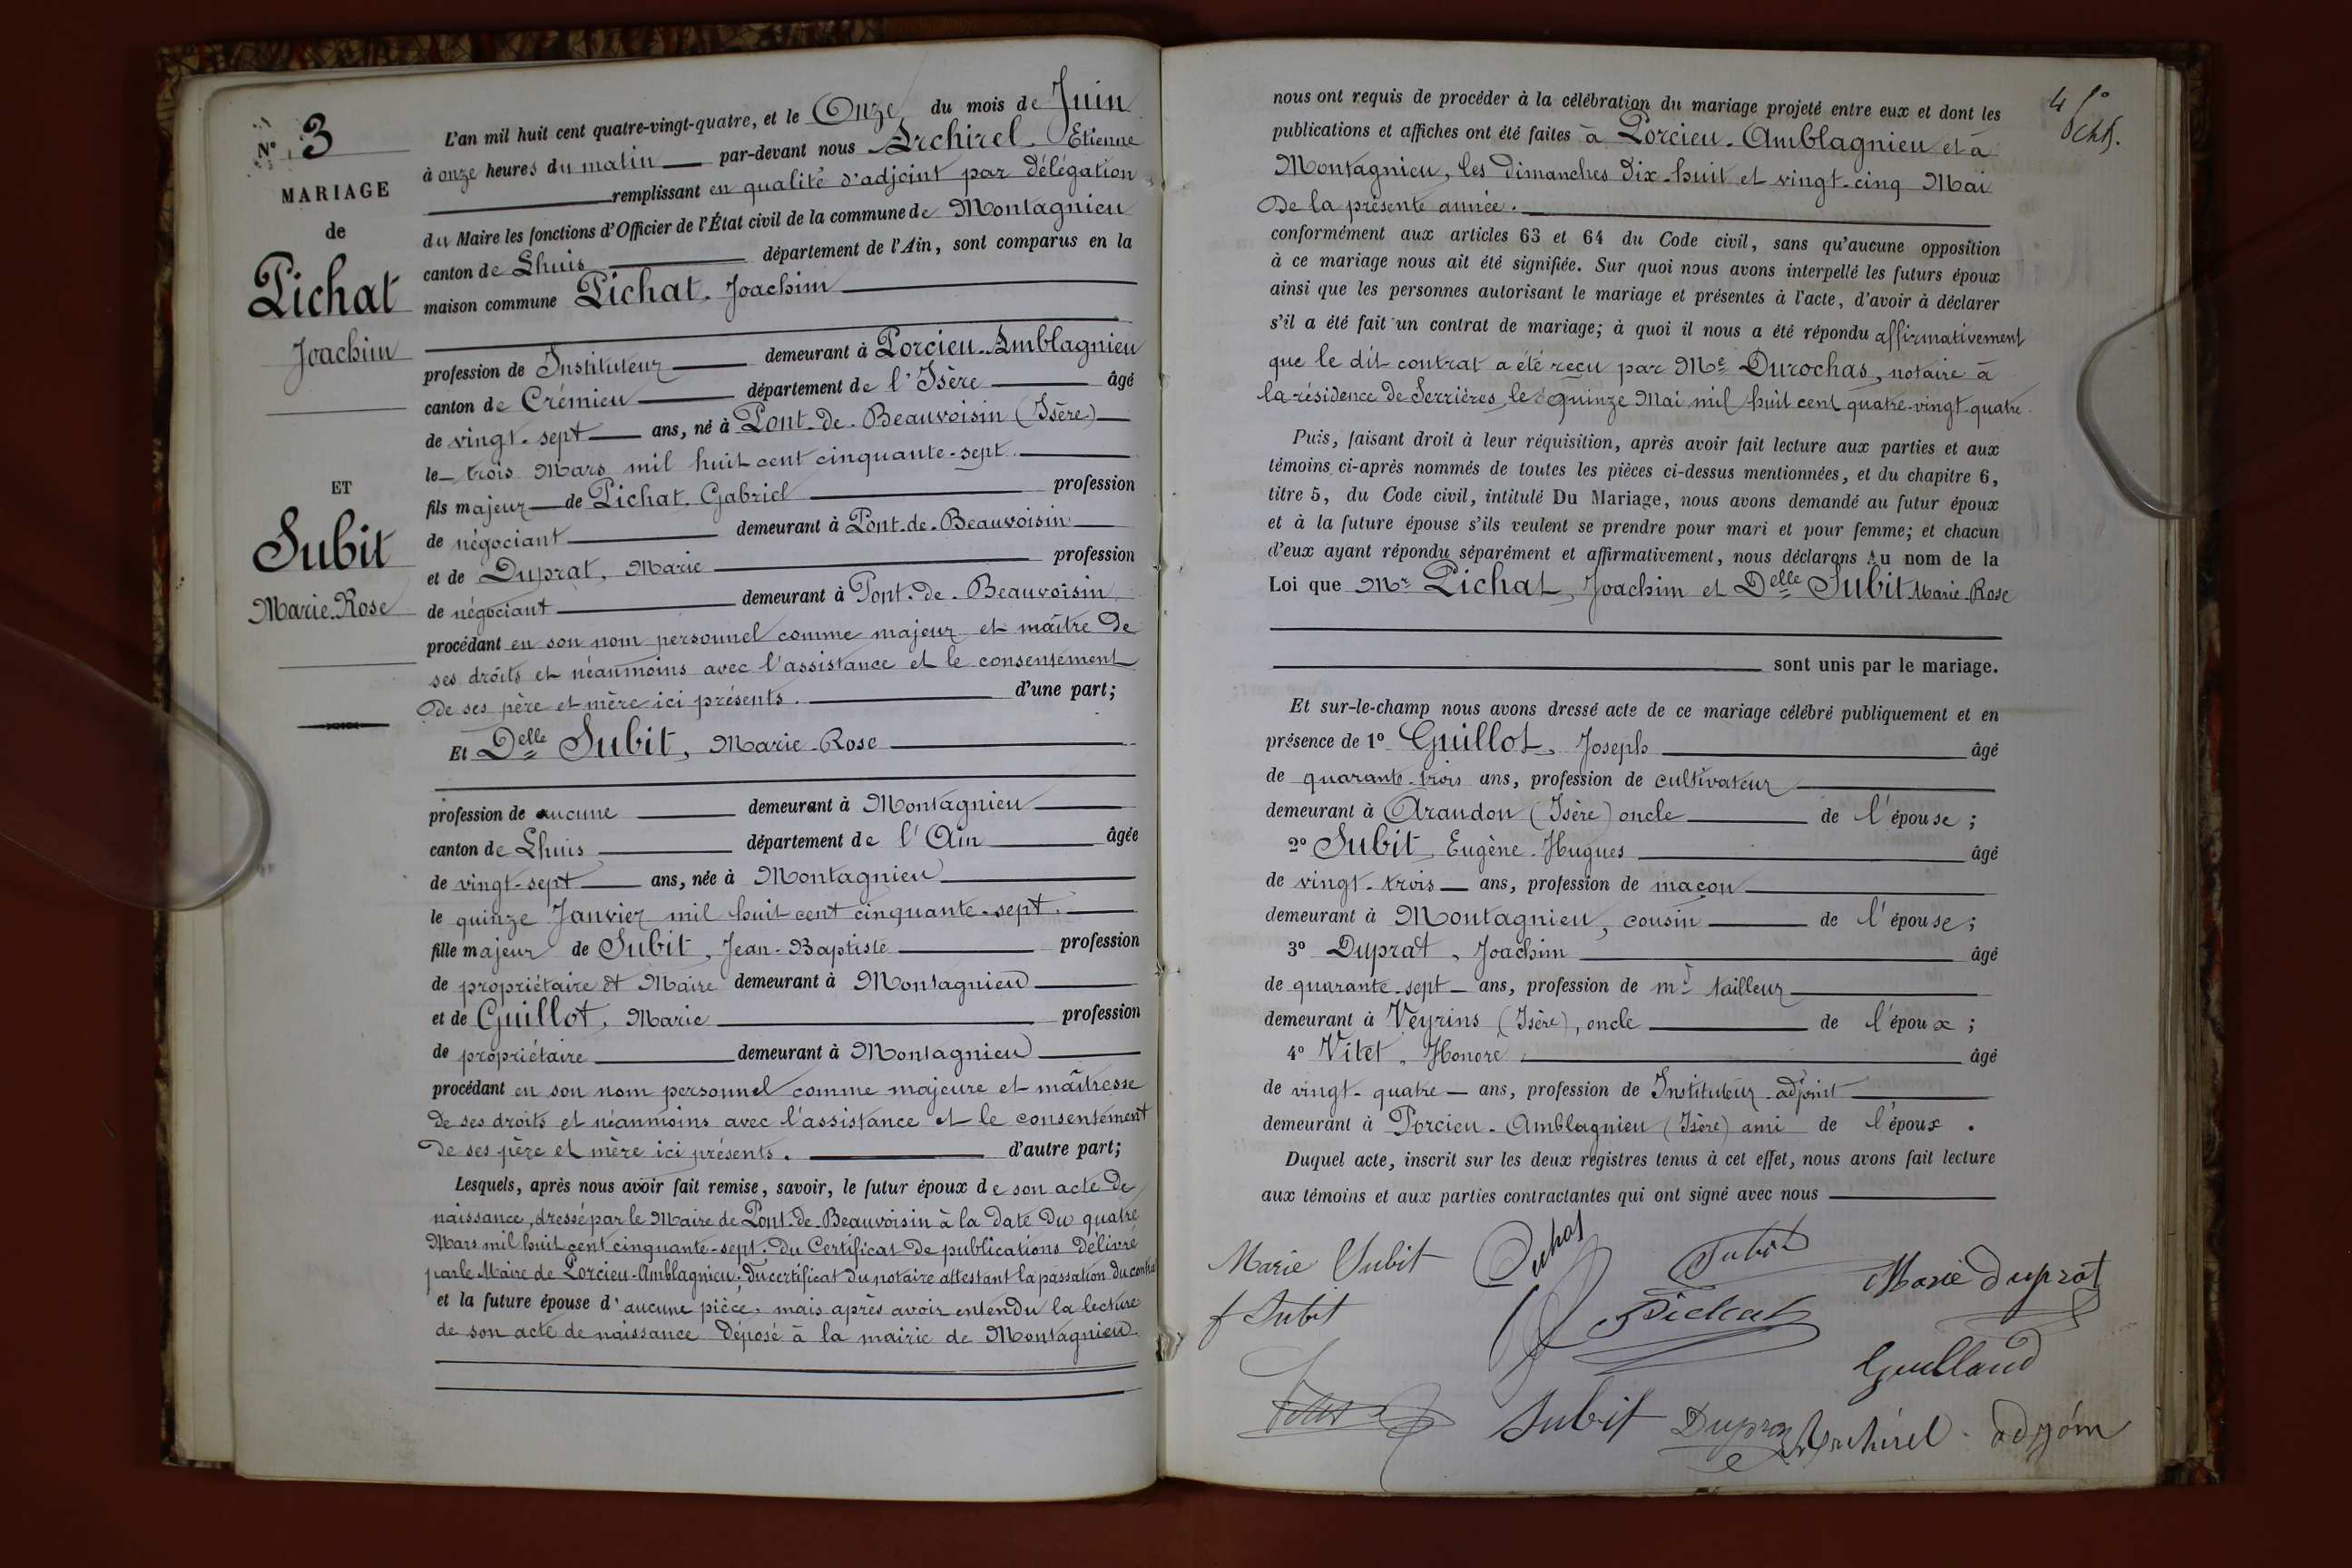 N° 3
MARIAGE
de
Pichat
Joachim
ET
Subit
Marie-Rose
L'an mil huit cent quatre-vingt-quatre, et le Onze du mois de Juin
à onze heures du matin par-devant nous Archirel Etienne
remplissant en qualité d'adjoint par délégation
du Maire les fonctions d'Officier de l'État civil de la commune de Montagnieu
canton de Lhuis département de l'Ain, sont comparus en la
maison commune Pichat, Joachim
profession de Instituteur demeurant à Porcieu-Amblagnieu
canton de Crémieu département de l'Isère âgé
de vingt-sept ans, né à Pont-de-Beauvoisin (Isère)
le trois Mars mil huit cent cinquante-sept.
fils majeur de Pichat, Gabriel profession
de négociant demeurant à Pont-de-Beauvoisin
et de Duprat, Marie profession
de négociant demeurant à Pont-de-Beauvoisin
procédant en son nom personnel comme majeur et maître de
ses droits et néanmoins avec l'assistance et le consentement
de ses père et mère ici présents. d'une part;
Et Delle Subit, Marie-Rose
profession de aucune demeurant à Montagnieu
canton de Lhuis département de l'Ain âgée
de vingt-sept ans, née à Montagnieu
le quinze Janvier mil huit cent cinquante-sept.
fille majeur de Subit, Jean-Baptiste profession
de propriétaire et Maire demeurant à Montagnieu
et de Guillot, Marie profession
de propriétaire demeurant à Montagnieu
procédant en son nom personnel comme majeure et maîtresse
de ses droits et néanmoins avec l'assistance et le consentement
de ses père et mère ici présents. d'autre part;
Lesquels, après nous avoir fait remise, savoir, le futur époux de son acte de
naissance, dressé par le Maire de Pont-de-Beauvoisin à la date du quatre
Mars mil huit cent cinquante-sept. Du Certificat de publications délivré
par le Maire de Porcieu-Amblagnieu. Du certificat du notaire attestant la passation du
et la future épouse d'aucune pièce, mais après avoir entendu la lecture
de son acte de naissance déposé à la mairie de Montagnieu
4 f°
nous ont requis de procéder à la célébration du mariage projeté entre eux et dont les
publications et affiches ont été faites à Porcieu-Amblagnieu et à
Montagnieu, les dimanches dix-huit et vingt-cinq Mai
de la présente année.
conformément aux articles 63 et 64 du Code civil, sans qu'aucune opposition
à ce mariage nous ait été signifiée. Sur quoi nous avons interpellé les futurs époux
ainsi que les personnes autorisant le mariage et présentes à l'acte, d'avoir à déclarer
s'il a été fait un contrat de mariage; à quoi il nous a été répondu affirmativement
que le dit contrat a été reçu par Me Durochas, notaire à
la résidence de Serrières, le quinze Mai mil huit cent quatre-vingt-quatre.
Puis, faisant droit à leur réquisition, après avoir fait lecture aux parties et aux
témoins ci-après nommés de toutes les pièces ci-dessus mentionnées, et du chapitre 6,
titre 5, du Code civil, intitulé Du Mariage, nous avons demandé au futur époux
et à la future épouse s'ils veulent se prendre pour mari et pour femme; et chacun
d'eux ayant répondu séparément et affirmativement, nous déclarons Au nom de la
Loi que Mr Pichat, Joachim et Delle Subit Marie-Rose
sont unis par le mariage.
Et sur-le-champ nous avons dressé acte de ce mariage célébré publiquement et en
présence de 1° Guillot, Joseph âgé
de quarante-trois ans, profession de cultivateur
demeurant à Arandon (Isère) oncle de l'épouse;
2° Subit, Eugène-Hugues âgé
de vingt-trois ans, profession de maçon
demeurant à Montagnieu, cousin de l'épouse;
3° Duprat, Joachim âgé
de quarante-sept ans, profession de md tailleur
demeurant à Veyrins (Isère), oncle de l'époux;
4° Vitet, Honoré âgé
de vingt-quatre ans, profession de Instituteur-adjoint
demeurant à Porcieu-Amblagnieu (Isère) ami de l'époux.
Duquel acte, inscrit sur les deux registres tenus à cet effet, nous avons fait lecture
aux témoins et aux parties contractantes qui ont signé avec nous
Marie Subit
Subit
Marie Duprat
Subit
Pichat
Subit
Archirel